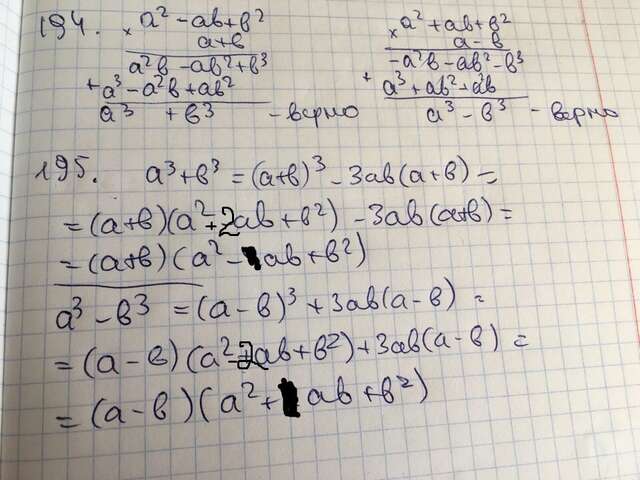 194. × a² - ab + b²
a + b
a²b - ab² + b³
+ a³ - a²b + ab²
a³ + b³ - верно
× a² + ab + b²
a - b
-a²b - ab² - b³
+ a³ + ab² + a²b
a³ - b³ - верно
195. a³ + b³ = (a+b)³ - 3ab(a+b) =
= (a+b)(a² + 2ab + b²) - 3ab(a+b) =
= (a+b)(a² - ab + b²)
a³ - b³ = (a-b)³ + 3ab(a-b) =
= (a-b)(a² - 2ab + b²) + 3ab(a-b) =
= (a-b)(a² + ab + b²)